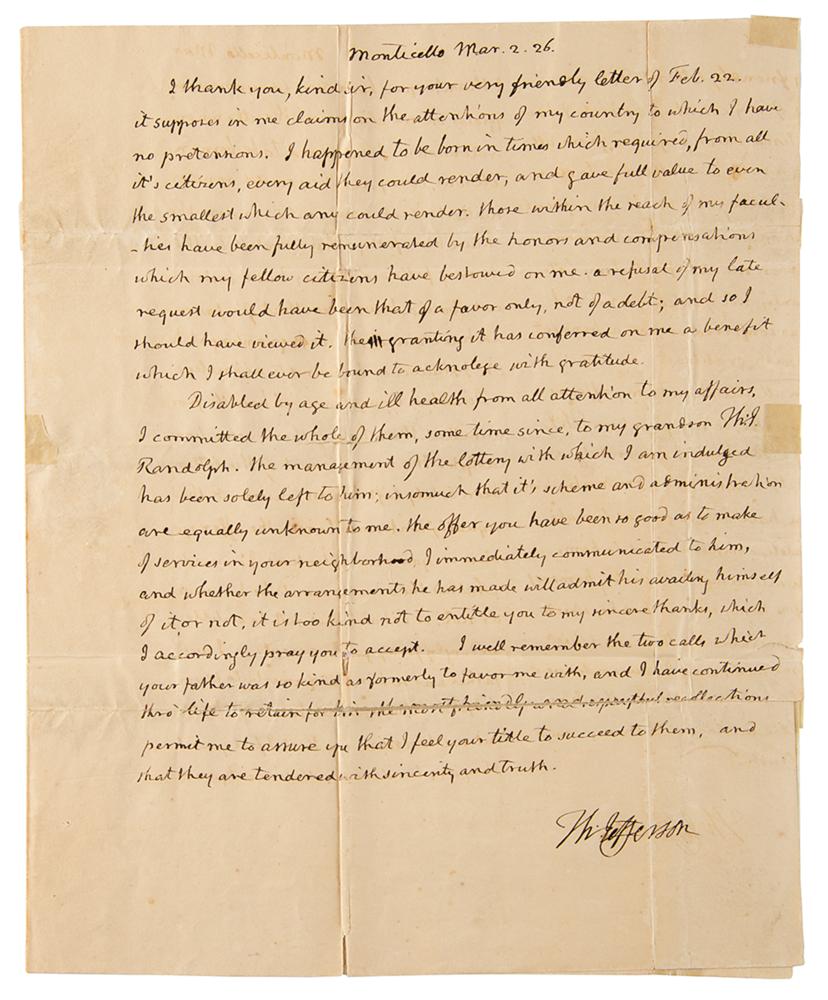 Monticello Mar. 2. 26.
I thank you, kind sir, for your very friendly letter of Feb. 22.
it supposes in me claims on the attentions of my country to which I have
no pretensions. I happened to be born in times which required, from all
it's citizens, every aid they could render, and gave full value to even
the smallest which any could render. those within the reach of my facul-
-ties have been fully remunerated by the honors and compensations
which my fellow citizens have bestowed on me. a refusal of my late
request would have been that of a favor only, not of a debt; and so I
should have viewed it. the granting it has conferred on me a benefit
which I shall ever be bound to acknolege with gratitude.
Disabled by age and ill health from all attention to my affairs,
I committed the whole of them, some time since, to my grandson Th: J.
Randolph. the management of the lottery with which I am indulged
has been solely left to him; insomuch that it's scheme and administration
are equally unknown to me. the offer you have been so good as to make
of services in your neighborhood, I immediately communicated to him,
and whether the arrangements he has made will admit his availing himself
of it, or not, it is too kind not to entitle you to my sincere thanks, which
I accordingly pray you to accept. I well remember the two calls which
your father was so kind as formerly to favor me with, and I have continued
thro' life to retain for him the most friendly and respectful recollections
permit me to assure you that I feel your title to succeed to them, and
that they are tendered with sincerity and truth.
Th: Jefferson